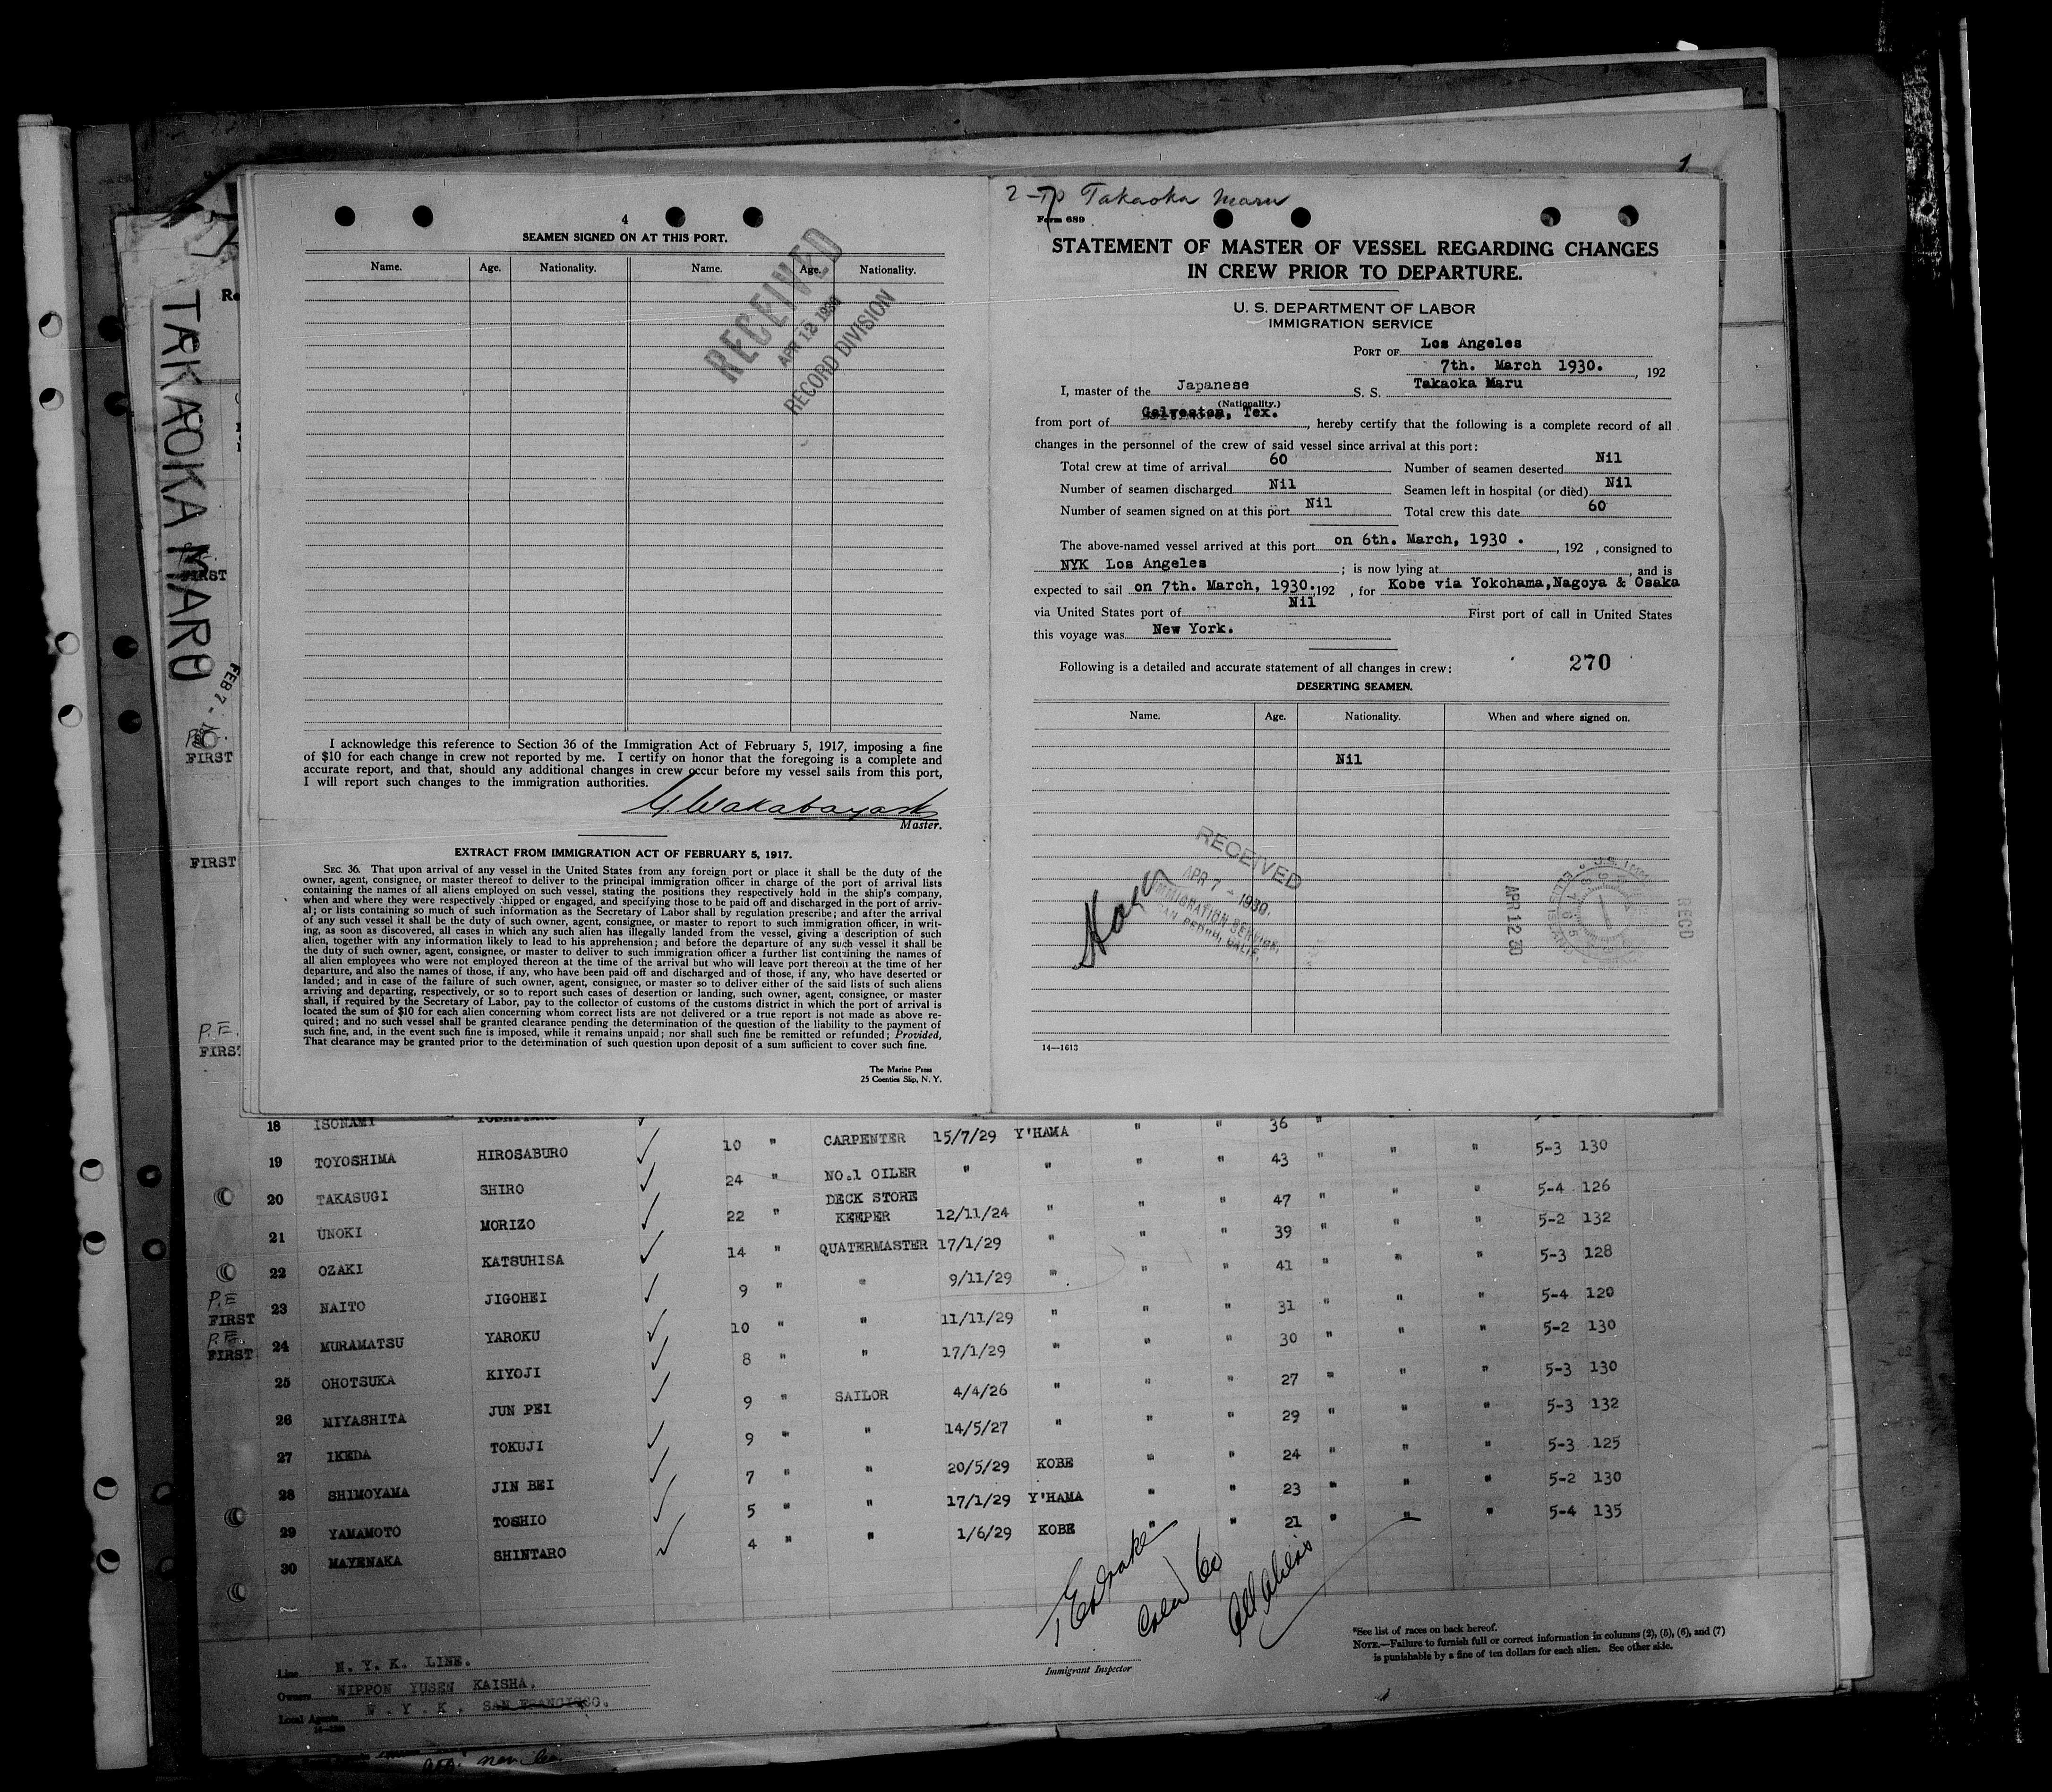 4
SEAMEN SIGNED ON AT THIS PORT.
Name. Age. Nationality. Name. Age. Nationality.
RECEIVED
APR 12 1930
RECORD DIVISION
I acknowledge this reference to Section 36 of the Immigration Act of February 5, 1917, imposing a fine
of $10 for each change in crew not reported by me. I certify on honor that the foregoing is a complete and
accurate report, and that, should any additional changes in crew occur before my vessel sails from this port,
I will report such changes to the immigration authorities.
Master.
EXTRACT FROM IMMIGRATION ACT OF FEBRUARY 5, 1917.
SEC. 36. That upon arrival of any vessel in the United States from any foreign port or place it shall be the duty of the
owner, agent, consignee, or master thereof to deliver to the principal immigration officer in charge of the port of arrival lists
containing the names of all aliens employed on such vessel, stating the positions they respectively hold in the ship's company,
when and where they were respectively shipped or engaged, and specifying those to be paid off and discharged in the port of arriv-
al; or lists containing so much of such information as the Secretary of Labor shall by regulation prescribe; and after the arrival
of any such vessel it shall be the duty of such owner, agent, consignee, or master to report to such immigration officer, in writ-
ing, as soon as discovered, all cases in which any such alien has illegally landed from the vessel, giving a description of such
alien, together with any information likely to lead to his apprehension; and before the departure of any such vessel it shall be
the duty of such owner, agent, consignee, or master to deliver to such immigration officer a further list containing the names of
all alien employees who were not employed thereon at the time of the arrival but who will leave port thereon at the time of her
departure, and also the names of those, if any, who have been paid off and discharged and of those, if any, who have deserted or
landed; and in case of the failure of such owner, agent, consignee, or master so to deliver either of the said lists of such aliens
arriving and departing, respectively, or so to report such cases of desertion or landing, such owner, agent, consignee, or master
shall, if required by the Secretary of Labor, pay to the collector of customs of the customs district in which the port of arrival is
located the sum of $10 for each alien concerning whom correct lists are not delivered or a true report is not made as above re-
quired; and no such vessel shall be granted clearance pending the determination of the question of the liability to the payment of
such fine, and, in the event such fine is imposed, while it remains unpaid; nor shall such fine be remitted or refunded; Provided,
That clearance may be granted prior to the determination of such question upon deposit of a sum sufficient to cover such fine.
The Marine Press
25 Coenties Slip, N. Y.
Takaoka Maru
Form 689
STATEMENT OF MASTER OF VESSEL REGARDING CHANGES
IN CREW PRIOR TO DEPARTURE.
U. S. DEPARTMENT OF LABOR
IMMIGRATION SERVICE
PORT OF Los Angeles
7th. March 1930. , 192
I, master of the Japanese S. S. Takaoka Maru
(Nationality.)
from port of Galveston, Tex. , hereby certify that the following is a complete record of all
changes in the personnel of the crew of said vessel since arrival at this port:
Total crew at time of arrival 60 Number of seamen deserted Nil
Number of seamen discharged Nil Seamen left in hospital (or died) Nil
Number of seamen signed on at this port Nil Total crew this date 60
The above-named vessel arrived at this port on 6th. March, 1930 . , 192 , consigned to
NYK Los Angeles ; is now lying at , and is
expected to sail on 7th. March, 1930. 192 , for Kobe via Yokohama,Nagoya & Osaka
via United States port of Nil First port of call in United States
this voyage was New York.
Following is a detailed and accurate statement of all changes in crew: 270
DESERTING SEAMEN.
Name. Age. Nationality. When and where signed on.
Nil
RECEIVED
APR 7 - 1930.
IMMIGRATION SERVICE,
SAN PEDRO, CALIF.
APR 12 30
RECD
14—1613
TAKAOKA MARU
FEB 7 -
FIRST
FIRST
FIRST
P.E.
FIRST
18 ISONAMI 36 "
19 TOYOSHIMA HIROSABURO 10 " CARPENTER 15/7/29 Y'HAMA " " 43 " " " 5-3 130
20 TAKASUGI SHIRO 24 " NO.1 OILER " " " " 47 " " " 5-4 126
21 UNOKI MORIZO 22 " DECK STORE KEEPER 12/11/24 " " " 39 " " " 5-2 132
22 OZAKI KATSUHISA 14 " QUATERMASTER 17/1/29 " " " 41 " " " 5-3 128
P.E FIRST 23 NAITO JIGOHEI 9 " " 9/11/29 " " " 31 " " " 5-4 120
P.E. FIRST 24 MURAMATSU YAROKU 10 " " 11/11/29 " " " 30 " " " 5-2 130
25 OHOTSUKA KIYOJI 8 " " 17/1/29 " " " 27 " " " 5-3 130
26 MIYASHITA JUN PEI 9 " SAILOR 4/4/26 " " " 29 " " " 5-3 132
27 IKEDA TOKUJI 9 " " 14/5/27 " " " 24 " " " 5-3 125
28 SHIMOYAMA JIN BEI 7 " " 20/5/29 KOBE " " 23 " " " 5-2 130
29 YAMAMOTO TOSHIO 5 " " 17/1/29 Y'HAMA " " 21 " " " 5-4 135
30 MAYENAKA SHINTARO 4 " " 1/6/29 KOBE
Immigrant Inspector
*See list of races on back hereof.
NOTE.—Failure to furnish full or correct information in columns (2), (5), (6), and (7)
is punishable by a fine of ten dollars for each alien. See other side.
Line N. Y. K. LINE.
Owners NIPPON YUSEN KAISHA.
Local Agents N. Y. K. SAN FRANCISCO.